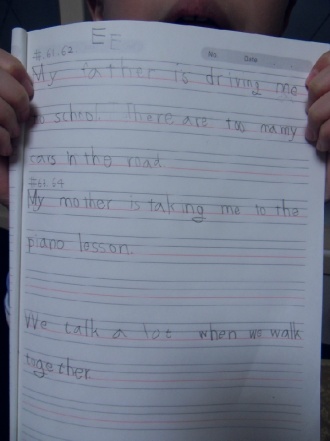 E E
No. Date
#.61.62
My father is driving me
to schol. There are too many
cars in the road.
#63.64
My mother is taking me to the
piano lesson.
We talk a lot when we walk
together.